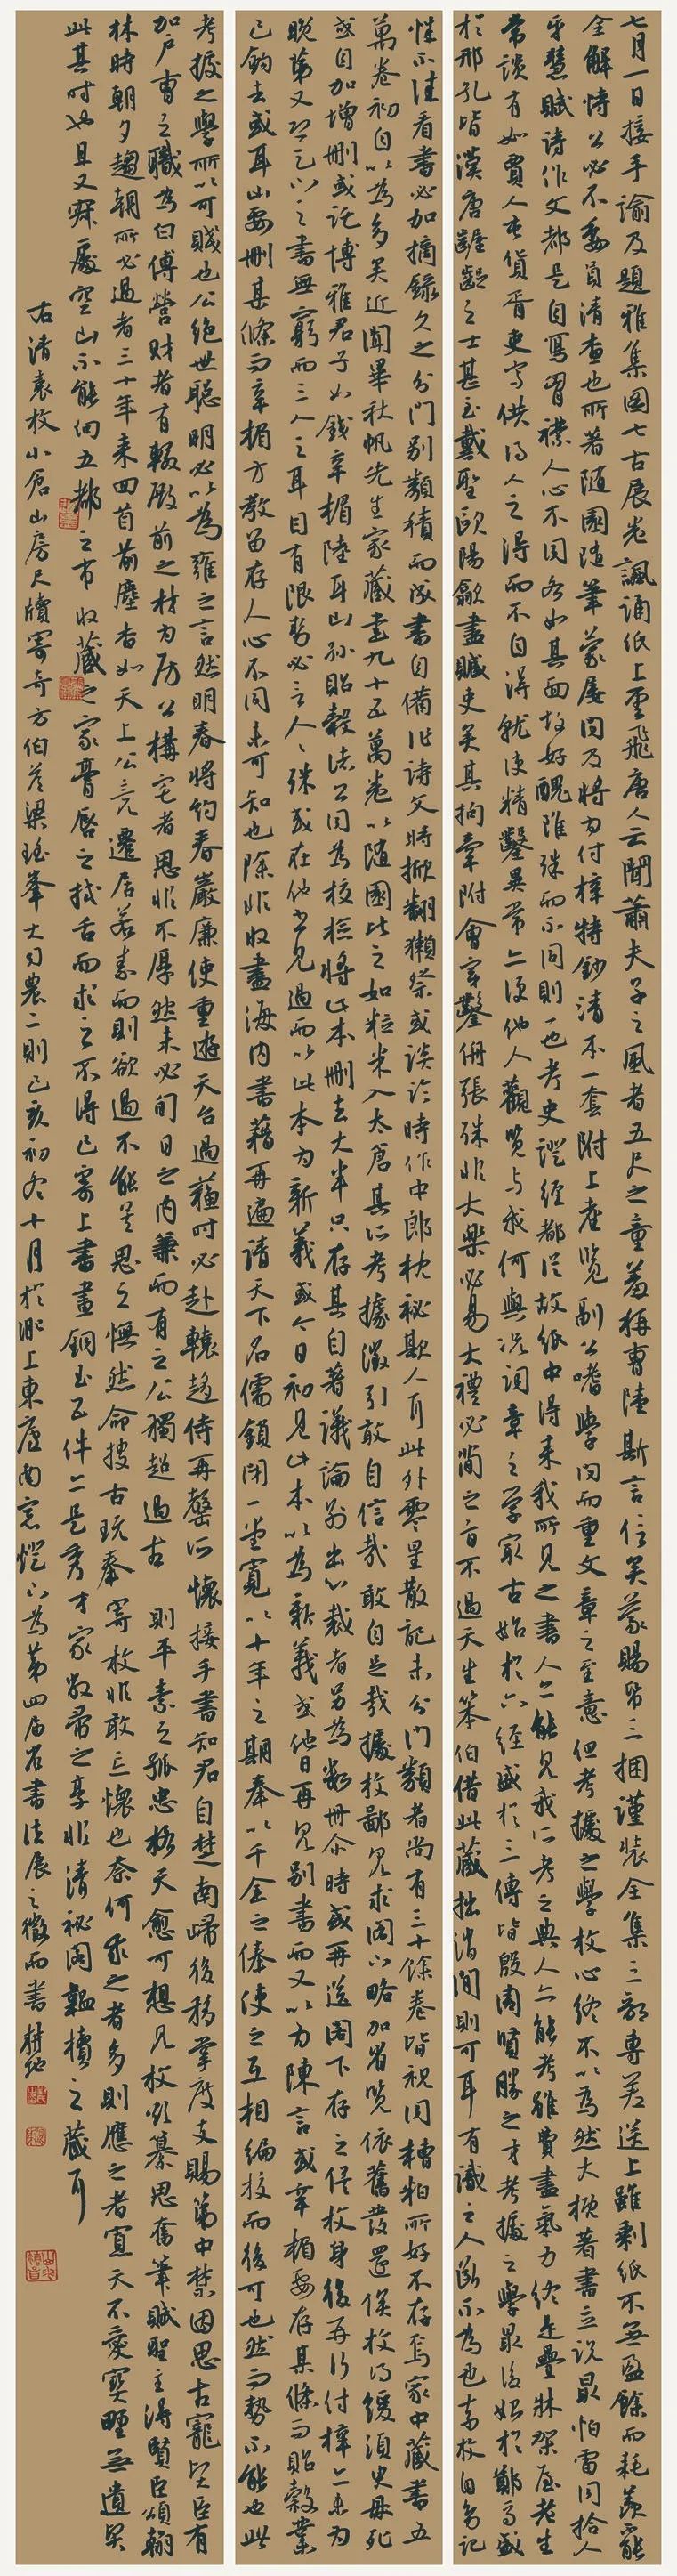 七月一日接手諭及題雅集圖七古展卷諷誦紙上雲飛唐人云聞蕭夫子之風者五尺之童羞稱曹陸斯言信矣蒙賜帋三捆謹裝全集三部專差送上雖剩紙不無盈餘而耗羨竊
全解恃公必不委員清查也所著隨園隨筆蒙屢問及將為付梓特鈔清本一套附上座覽副公嗜學問而重文章之至意但考據之學枚心終不以為然大概著書立說最怕雷同拾人
牙慧賦詩作文都是自寫胸襟人心不同各如其面故好醜雖殊而不同則一也考史證經都從故紙中得來我所見之書人亦能見我所考之典人亦能考雖費盡氣力終是疊牀架屋老生
常談有如賈人屯貨胥吏寫供得人之得而不自得就使精鑿異常亦便他人觀覽与我何與況詞章之學最古始於六經盛於三傳皆殷周賢勝之才考據之學最後始於鄭馬盛
於邢孔皆漢唐齷齪之士甚至戴聖歐陽歙盡贓吏矣其拘牽附會穿鑿冊張殊非大樂必易大禮必簡之旨不過天生笨伯借此藏拙消閒則可耳有識之人斷不為也奈枚自家記
性不佳看書必加摘錄久之分門別類積而成書自備作詩文時掀翻獺祭或談論時作中郎枕秘欺人耳此外零星散記未分門類者尚有三十餘卷皆視同糟粕所好不存焉家中藏書五
萬卷初自以為多矣近聞畢秋帆先生家藏書九十五萬卷以隨園比之如粒米入太倉其所考據徵引敢自信哉敢自足哉據枚鄙見求閣下略加省覽依舊發還俟枚得緩須臾毋死
或自加增刪或託博雅君子如錢辛楣陸耳山孫貽穀諸公同為校核將此本刪去大半只存其自著議論別出心裁者另為數冊爾時或再送閣下存之俟枚身後再行付梓亦未為
晚第又恐三人之書無窮而三人之耳目有限勢必言人人殊或在他書見過而以此本為新義或今日初見此本以為新義或他日再見別書而又以為陳言或辛楣要存某條而貽穀業
已鈎去或耳山要刪某條而辛楣方教留存人心不同未可知也除非收盡海內書籍再遍請天下名儒鎖閉一堂寬以十年之期奉以千金之俸使之互相編校而後可也然而勢不能也此
考據之學所以可賤也公絕世聰明必以為雍之言然明春將約春巖廉使重遊天台過蘇時必赴轅趨侍再罄所懷接手書知君自楚南歸後移掌度支賜第中禁因思古寵臣有
加戶曹之職為曰傅營財者有輟殿前之材為房公構宅者恩非不厚然未必旬日之內兼而有之公獨超過古則平素之孤忠格天愈可想見枚欲纂思奮筆賦聖主得賢臣頌翰
林時朝夕趨朝所必過者三十年來回首前塵杳如天上公言遷居若素而則欲過不能差思之憮然命搜古玩奉寄枚非敢忘懷也奈何求之者多則應之者寡天不愛寶野無遺矣
此其時也且又窮處空山不能伺五都之市收藏之家膏唇之拭舌而求之不得已寄上書畫銅玉五件亦是秀才家敝帚之享非清秘閣韞櫝之藏耳
右清袁枚小倉山房尺牘寄奇方伯答梁瑤峯大司農二則己亥初冬十月於淞上東廬南窗燈下為第四屆名書法展之徵而書耕地